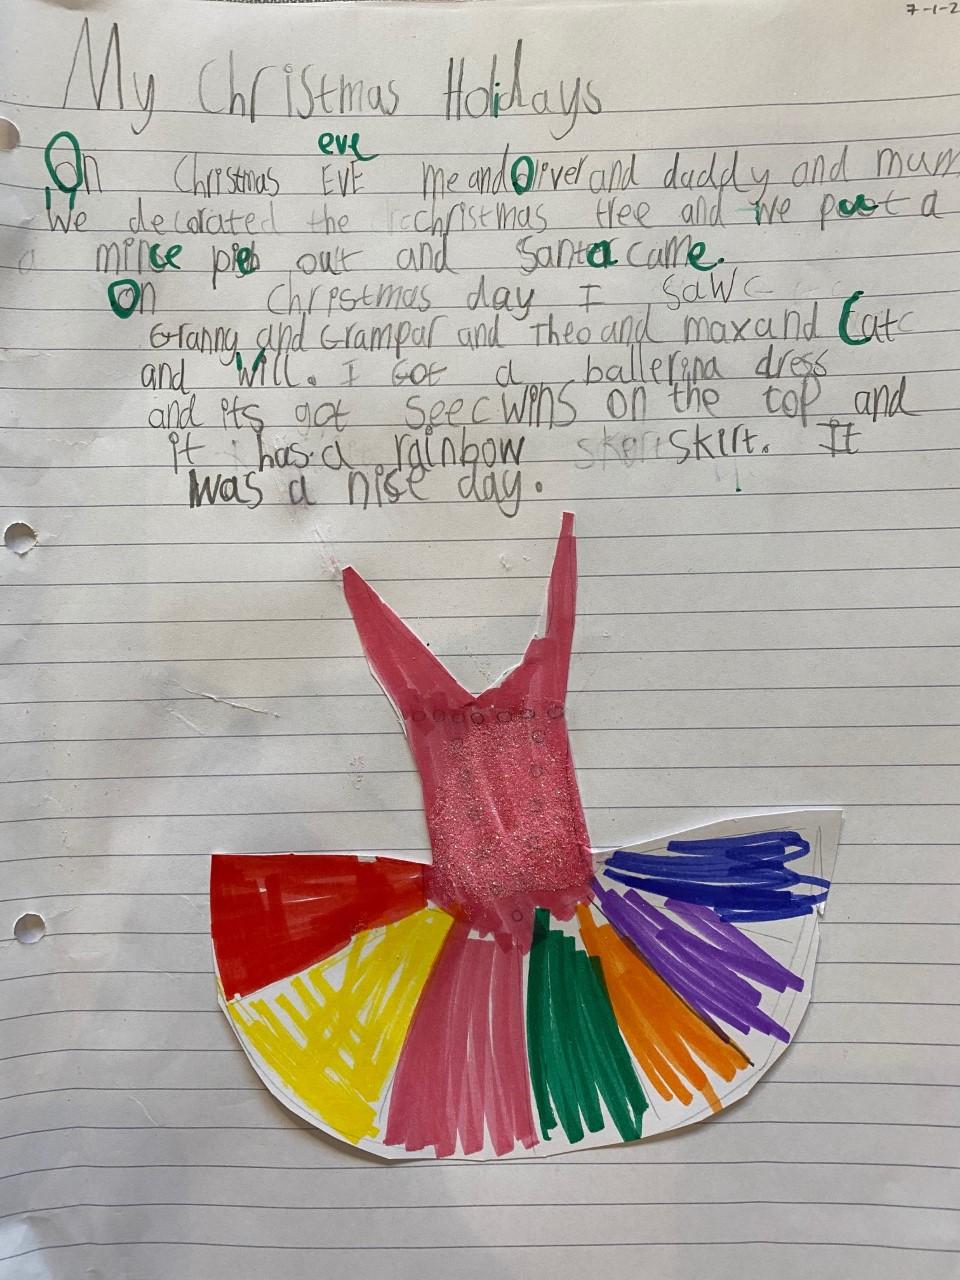 7-1-2
My Christmas Holidays
eve
On Christmas EVE me and Oliver and daddy and mum
We decorated the christmas tree and we poot a
a mince pie out and Santa came.
On Christmas day I saw
Granny and Grampar and Theo and max and Cat
and Will. I Got a ballerina dress
and its got seecwins on the top and
it has a rainbow skirt. It
was a nise day.